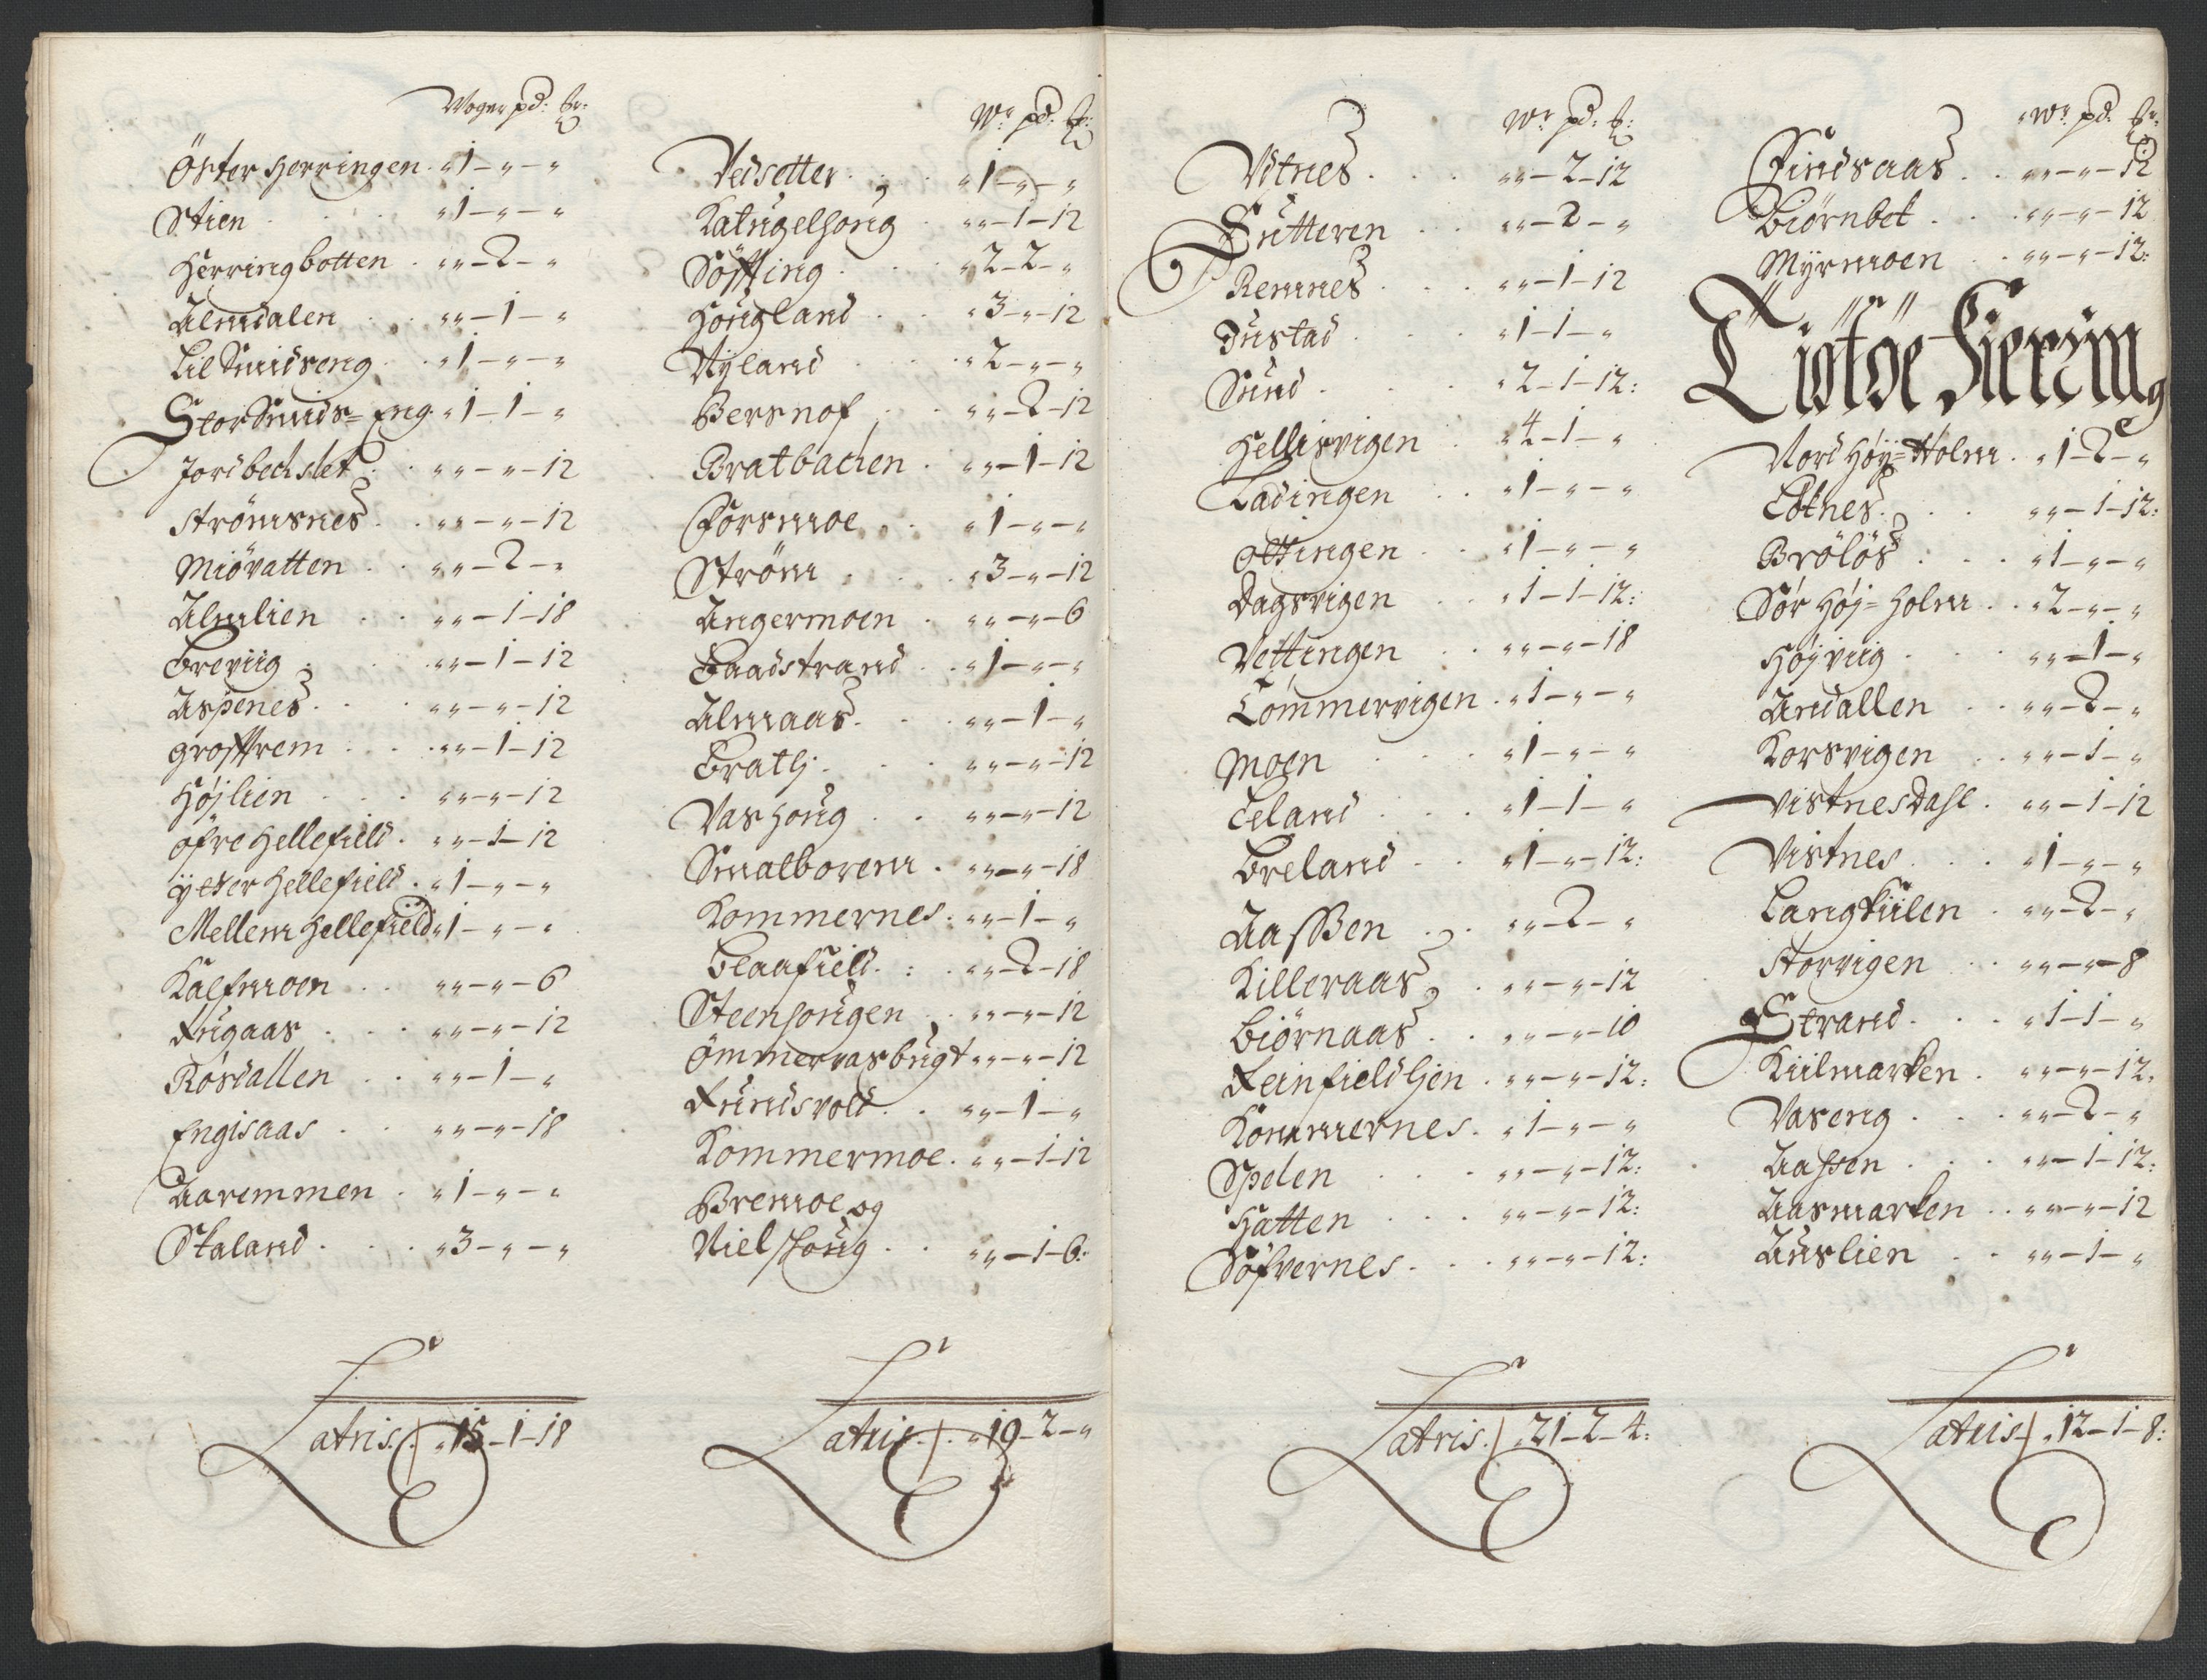 Woger pd: 
Öster Herringen . „ 1 – „ – „
Stien . . . „ 1 – „ – „
Herringbotten . „ „ – 2 – „
Almdalen . . „ „ – 1 – „
Lil Smidseng . . „ 1 – „ – „
Stor Smids= Eng „ 1 – 1 – „
Jordbechslet . . „ „ – „ – 12
Strömsnes . . „ „ – „ – 12
Miövatten . . „ „ – 2 – „
Almlien . . „ „ – 1 – 18
Breviig . . „ „ – 1 – 12
Aspenes . . „ „ – „ – 12
groffrem . . „ „ – 1 – 12
Höjlien . . „ „ – „ – 12
öfre Hellefield . „ „ – 1 – 12
ÿtter Hellefield . „ 1 – „ – „
Mellem Hellefield „ 1 – „ – „
Kalfmoen . . „ „ – „ – 6
Fugaas . . „ „ – „ – 12
Rösdallen . . „ „ – 1 – „
Engisaas . . „ „ – „ – 18
Aaremmen . „ 1 – „ – „
Skaland . . . „ 3 – „ – „
Latris . / . „ 15 – 1 – 18
Wr pd:
Vedsetter . . . „ 1 – „ – „
Katugelhoug . „ „ – 1 – 12
Söffting . . . „ 2 – 2 – „
Hougland . . „ 3 – „ – 12
Nÿland . . . „ 2 – „ – „
Bersnof . . „ „ – 2 – 12
Bratbachen . „ „ – 1 – 12
Forsmoe . . „ 1 – „ – „
Ström . . . „ 3 – „ – 12
Angermoen . „ „ – „ – 6
Baadstrand . . „ 1 – „ – „
Almaas . . . „ „ – 1 – „
Bratlj . . . „ „ – „ – 12
Vashoug . . „ „ – „ – 12
Smalborem . „ „ – „ – 18
Kommernes . „ „ – 1 – „
Blaafield . : . „ „ – 2 – 18
Steenhougen . . „ „ – „ – 12
Ömmervasbugt „ „ – „ – 12
Fundsvold . . „ „ – 1 – „
Kommermoe . „ „ – 1 – 12
Bremoe og
Nielshoug . . „ „ – 1 – 6:
Latris . / . „ 19 – 2 – „
Wr pd:
Vtnes . . . „ „ – 2 – 12
Sutteren . . „ „ – 2 – „
Remnes . . . „ „ – 1 – 12
Justad . . . „ 1 – 1 – „
Sund . . . „ 2 – 1 – 12:
Hellisvigen . „ 4 – 1 – „
Ladingen . . „ 1 – „ – „
ottingen . . „ 1 – „ – „
Dagsvigen . . „ 1 – 1 – 12:
Vettingen . . „ „ – „ – 18
Tömmervigen . „ 1 – „ – „
Moen . . . „ 1 – „ – „
Leland . . . „ 1 – 1 – „
Breland . . „ 1 – „ – 12:
Aassen . . „ „ – 2 – „
Killeraas . „ „ – „ – 12
Biörnaas . . „ „ – „ – 10
Leinfieldhen . „ „ – „ – 12:
Kommernes . „ 1 – „ – „
Spelen . . . „ „ – „ – 12:
Hatten . . . „ „ – „ – 12:
Söfvernes . . . „ „ – „ – 12:
Latris . / . 21 – 2 – 4:
Wr pd:
Findsaas . . „ „ – „ – 12
Biörnbet . . . „ „ – „ – 12
Mÿrmoen . . „ „ – „ – 12:
Tiötöe Fierring
Nord Höÿ= Holm . „ 1 – 2 – „
Lötnes . . . „ „ – 1 – 12:
Brölös . . . „ 1 – „ – „
Sör Höj= holm . . „ 2 – „ – „
Höjviig . . . „ „ – 1 – „
Andallen . . „ „ – 2 – „
Korsvigen . . „ „ – 1 – „
VistnesDahl . „ „ – 1 – 12
Vistnes . . . „ 1 – „ – „
Langkiilen . „ „ – 2 – „
Storvigen . . „ „ – „ – 8
Strand . . . „ 1 – 1 – „
Kiilmarken . „ „ – „ – 12:
Vaseng . . . „ „ – 2 – „
Aassen . . . „ „ – 1 – 12:
Aasmarken . . „ „ – „ – 12
Auslien . . „ „ – 1 – „
Latris / . „ 12 – 1 – 8: